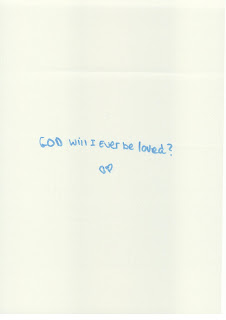 GOD will I ever be loved?